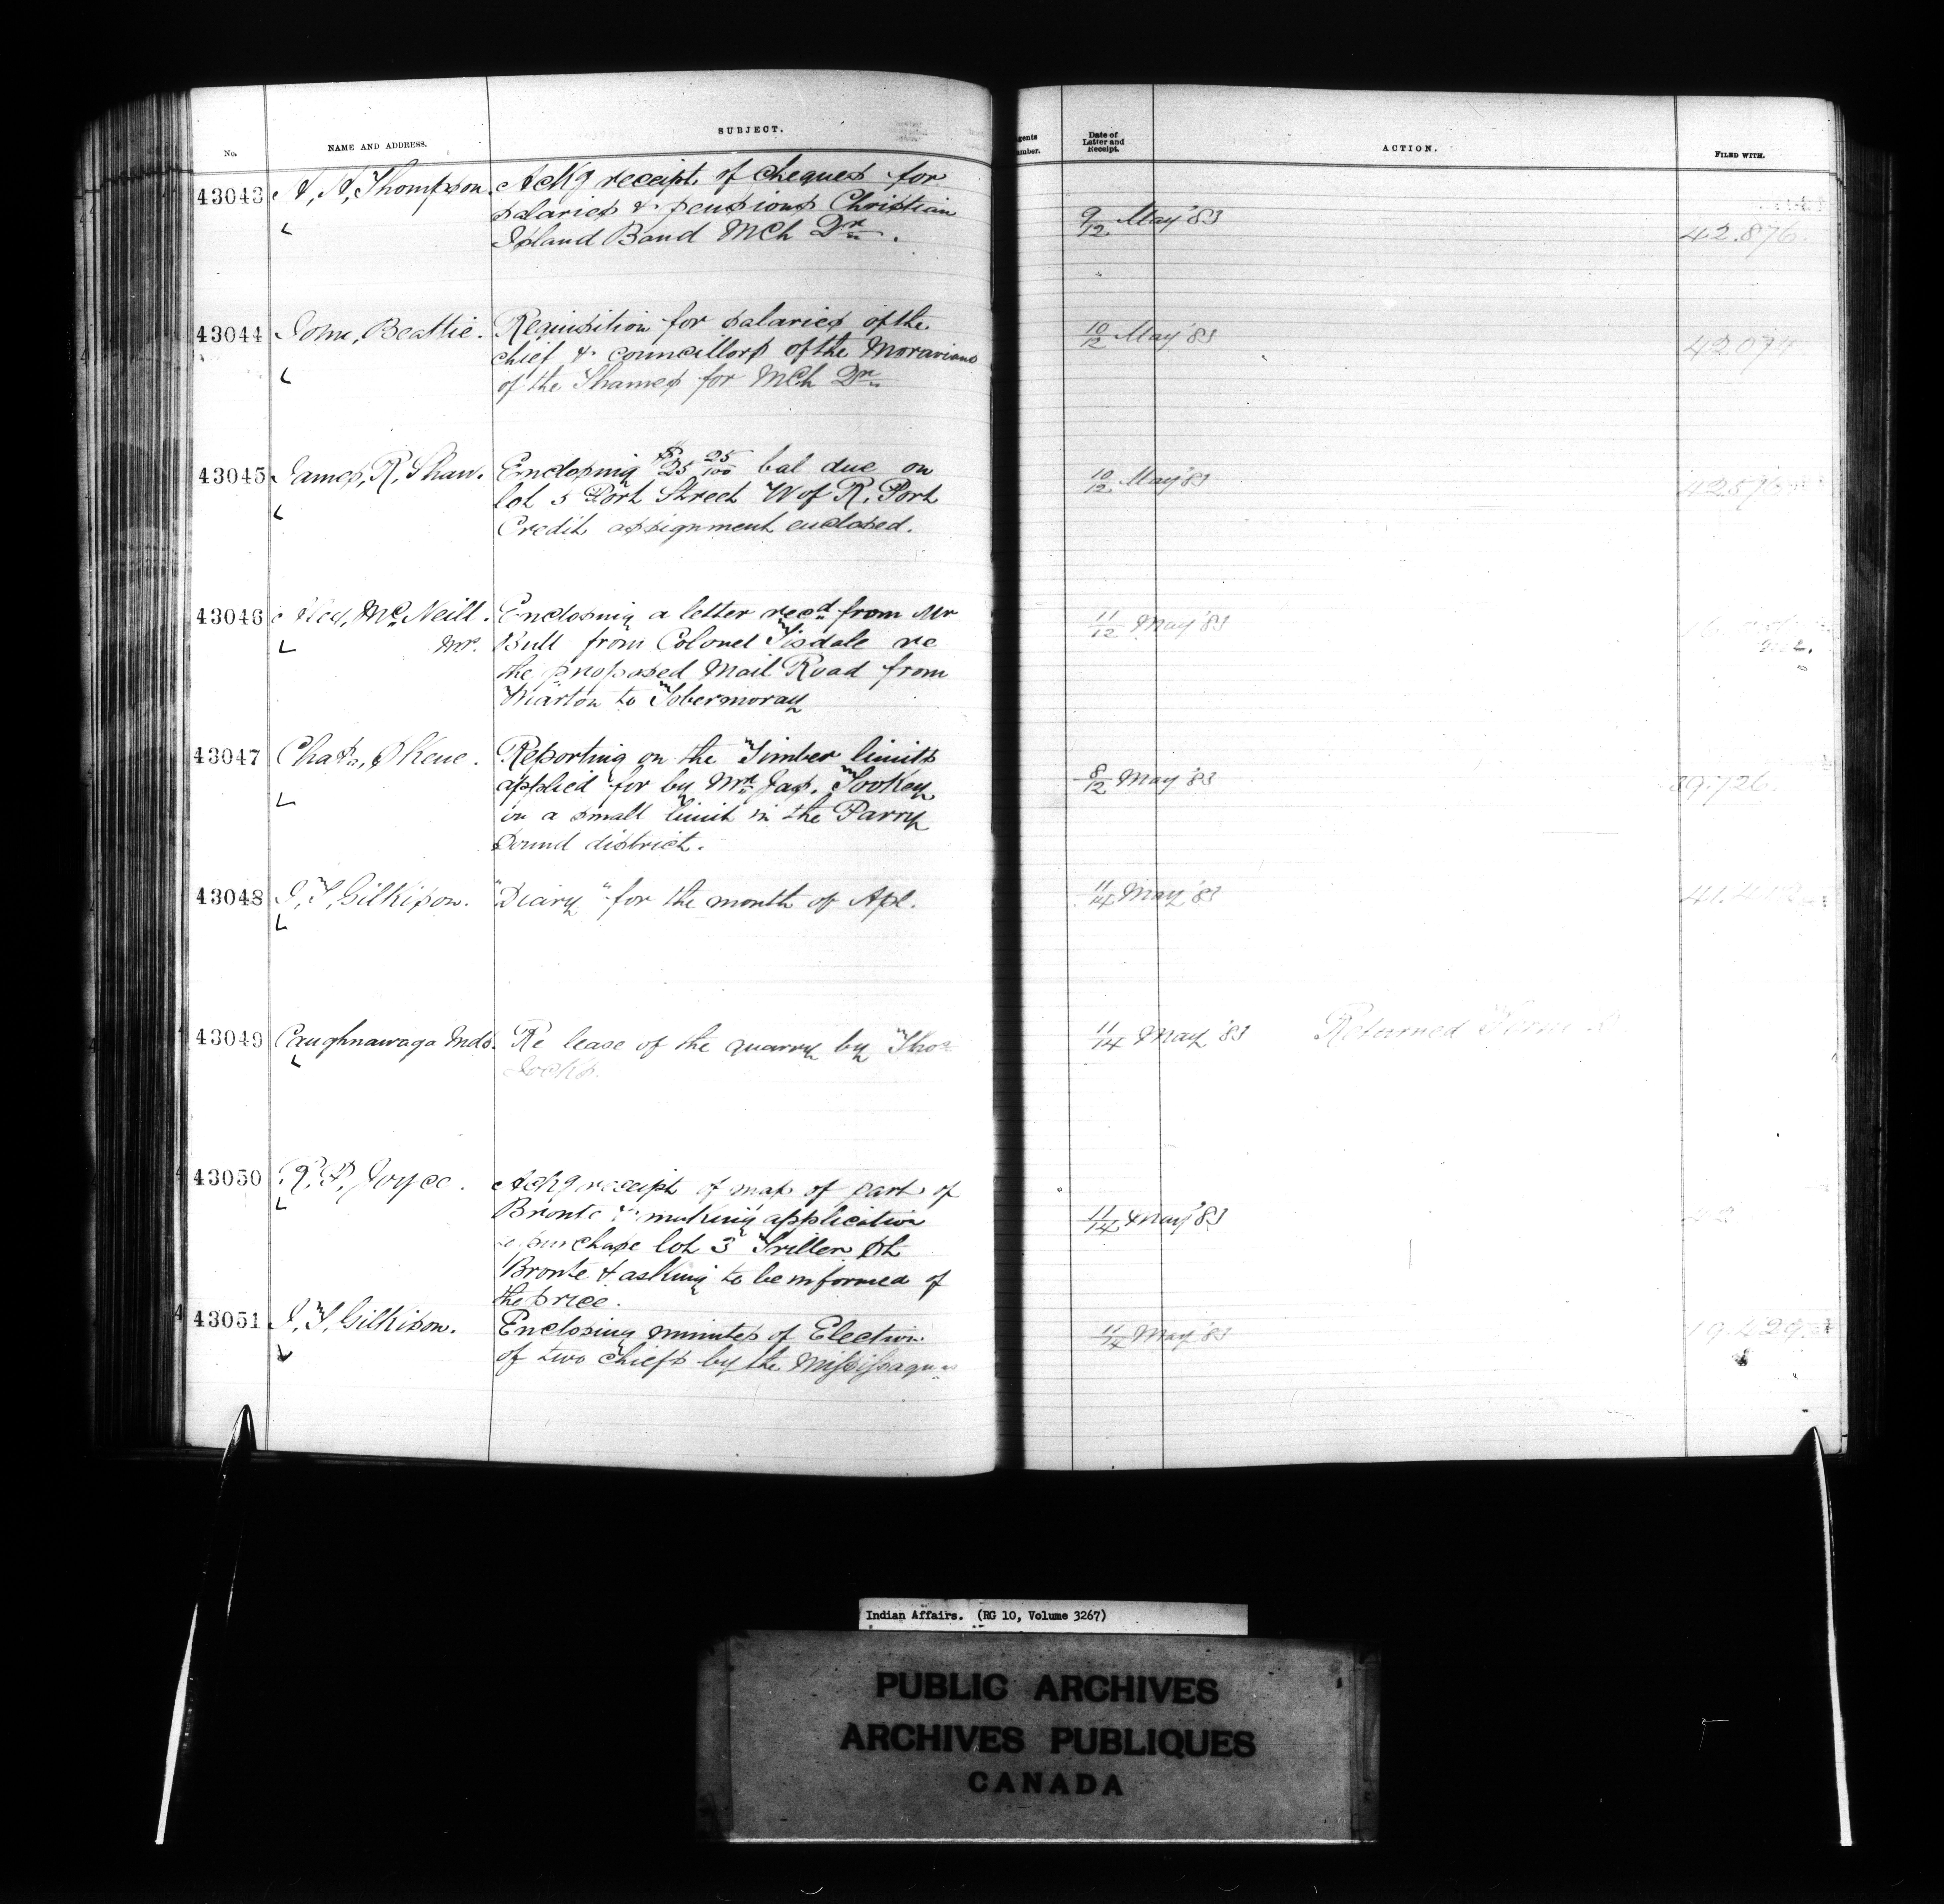 No.
NAME AND ADDRESS.
SUBJECT.
Date of
Letter and
Receipt.
ACTION.
FILED WITH.
43043 A, A, Thompson. Ackg receipt of cheques for
salaries & pensions Christian
Island Band Mch Qr. 9/12 May '83 42.876.
43044 John, Beattie. Requisition for salaries of the
chief & councillors of the Moravians
of the Thames for Mch Qr 10/12 May '83 42074
43045 James, R, Shaw. Enclosing $25 25/100 bal due on
lot 5 Port Street W of R. Port
Credit assignment enclosed. 10/12 May '83
43046 Alex, McNeill. Enclosing a letter recd from Mr
Mr. Bull from Colonel Tisdale re
the proposed Mail Road from
Wiarton to Tobermoray 11/12 May '83
43047 Chas, Skene. Reporting on the Timber limits
applied for by Mr Jas. Tookey
on a small limit in the Parry
Sound district. 8/12 May '83 39.726.
43048 J, T, Gilkison. "Diary" for the month of Apl. 11/14 May '83
43049 Caughnawaga Inds. Re lease of the quarry by Thos
Jocks. 11/14 May '83 Returned
43050 R, P, Joyce. Ackg receipt of map of part of
Bronte & making application
purchase lot 3 Triller St
Bronte & asking to be informed of
the price. 11/14 May '83
43051 J, T, Gilkison. Enclosing minutes of Election
of two chiefs by the Mississaguas 11/14 May '83 19.429.
Indian Affairs. (RG 10, Volume 3267)
PUBLIC ARCHIVES
ARCHIVES PUBLIQUES
CANADA